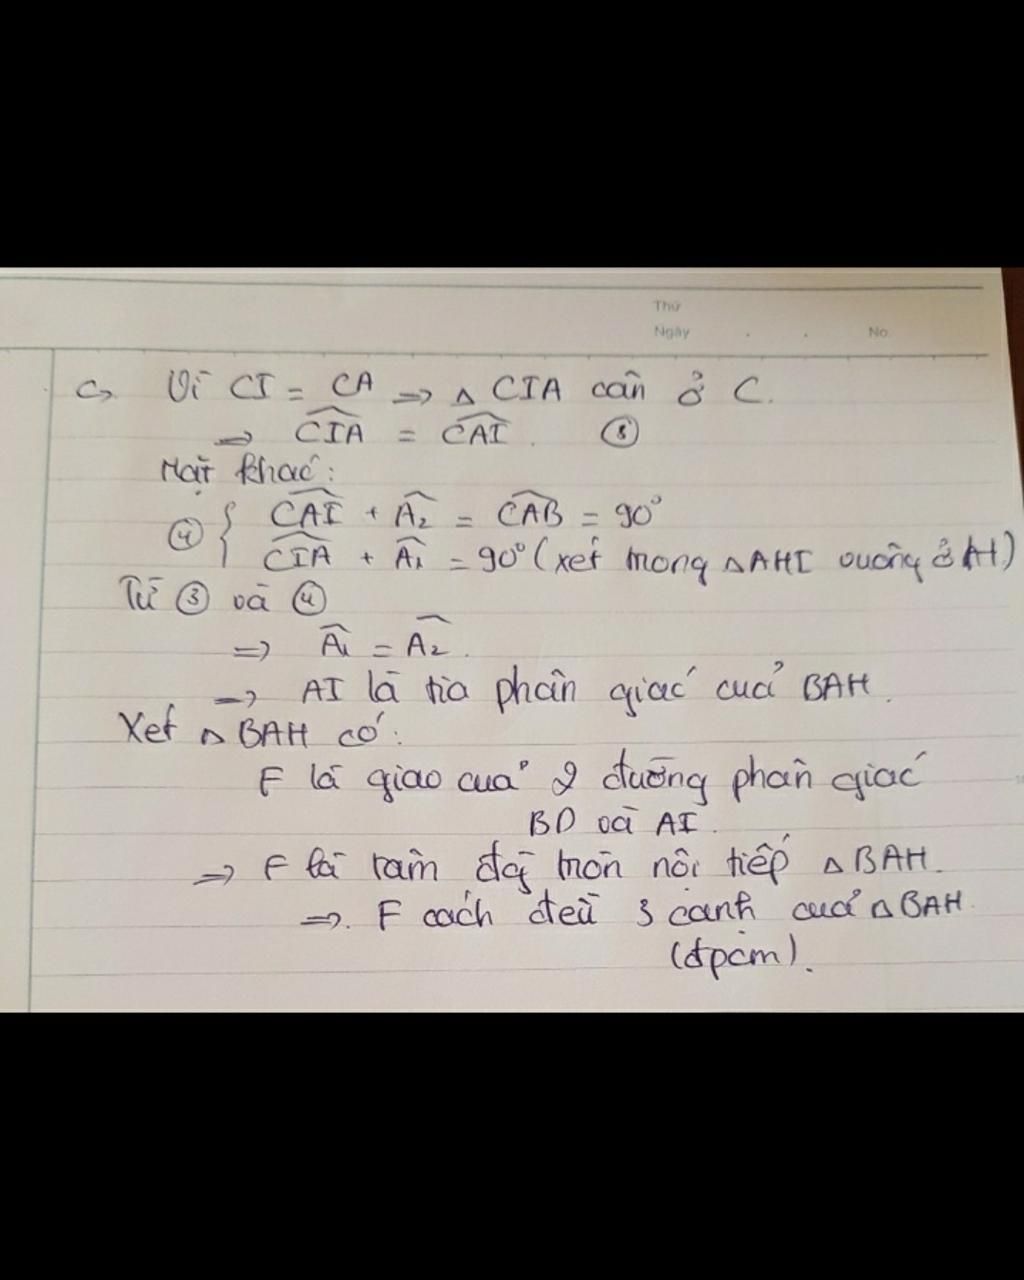 Thứ
Ngày . . No.
c, Vì CI = CA => △ CIA cân ở C.
=> \widehat{CIA} = \widehat{CAI}. ③
Mặt khác:
④ { \widehat{CAI} + \widehat{A₂} = \widehat{CAB} = 90°
\widehat{CIA} + \widehat{A₁} = 90° (xét trong △AHI vuông ở H)
Từ ③ và ④
=> \widehat{A₁} = \widehat{A₂}.
=> AI là tia phân giác của BAH.
Xét △ BAH có:
F là giao của 2 đường phân giác
BD và AI.
=> F là tâm đg tròn nội tiếp △ BAH.
=>. F cách đều 3 cạnh của △ BAH.
(đpcm).